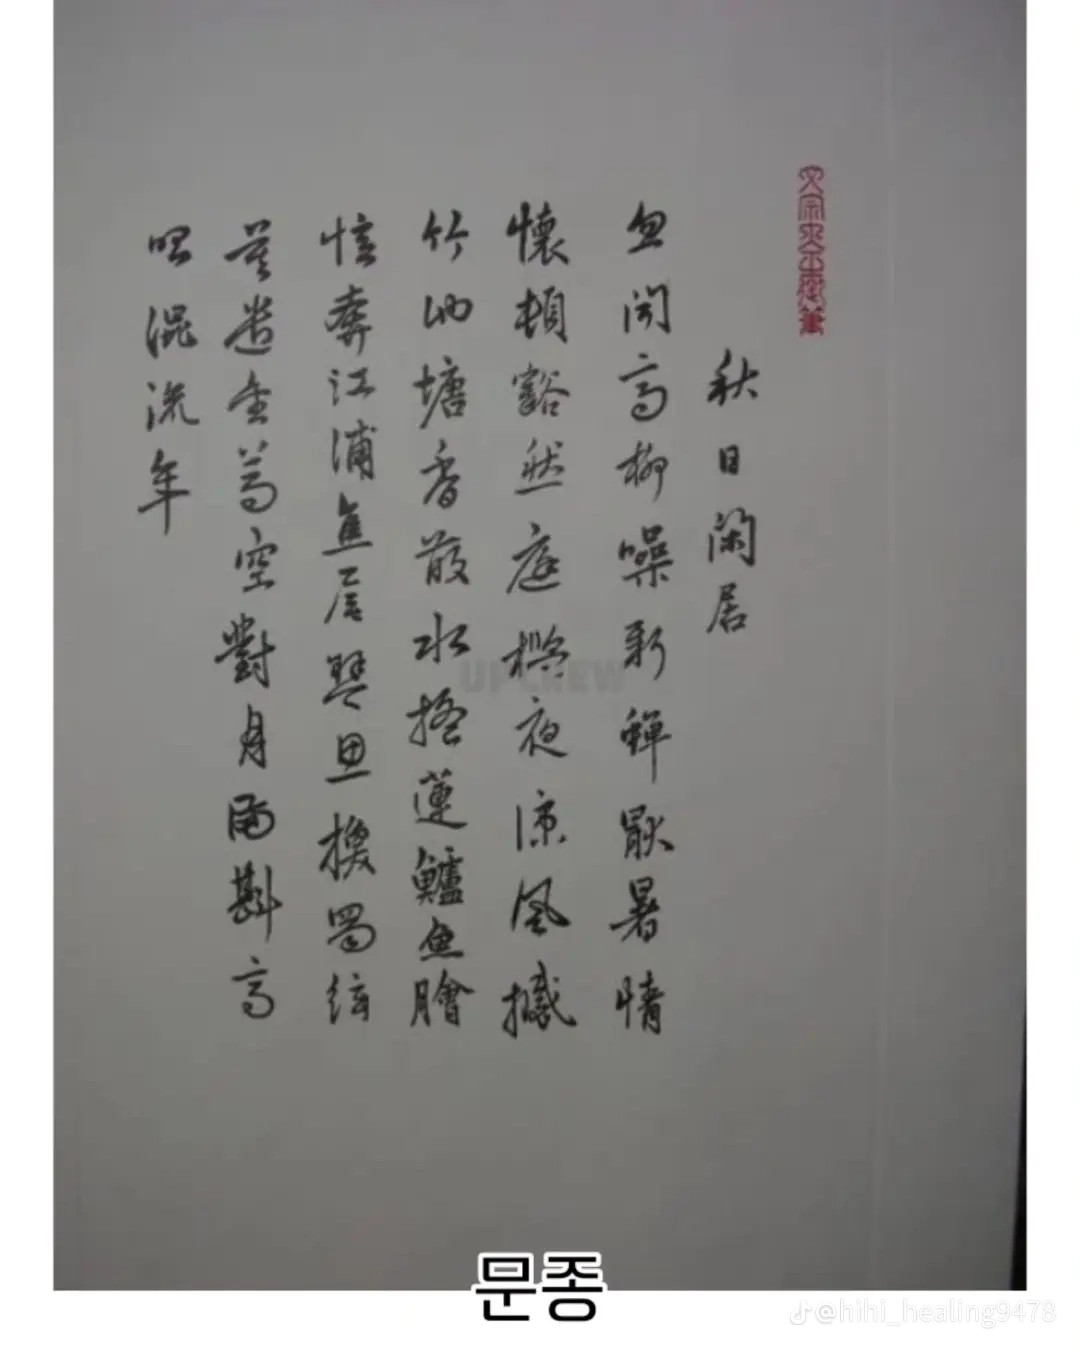 文宗大王御筆
秋日閑居
忽聞高柳噪新蟬厭暑情
懷頓豁然庭檻夜涼風撼
竹池塘香散水搖蓮鱸魚膾
憶奔江浦焦尾琴思換蜀絃
莫遣金尊空對月滿斟高
唱混流年
UPCREW
문종
@hihi_healing9478